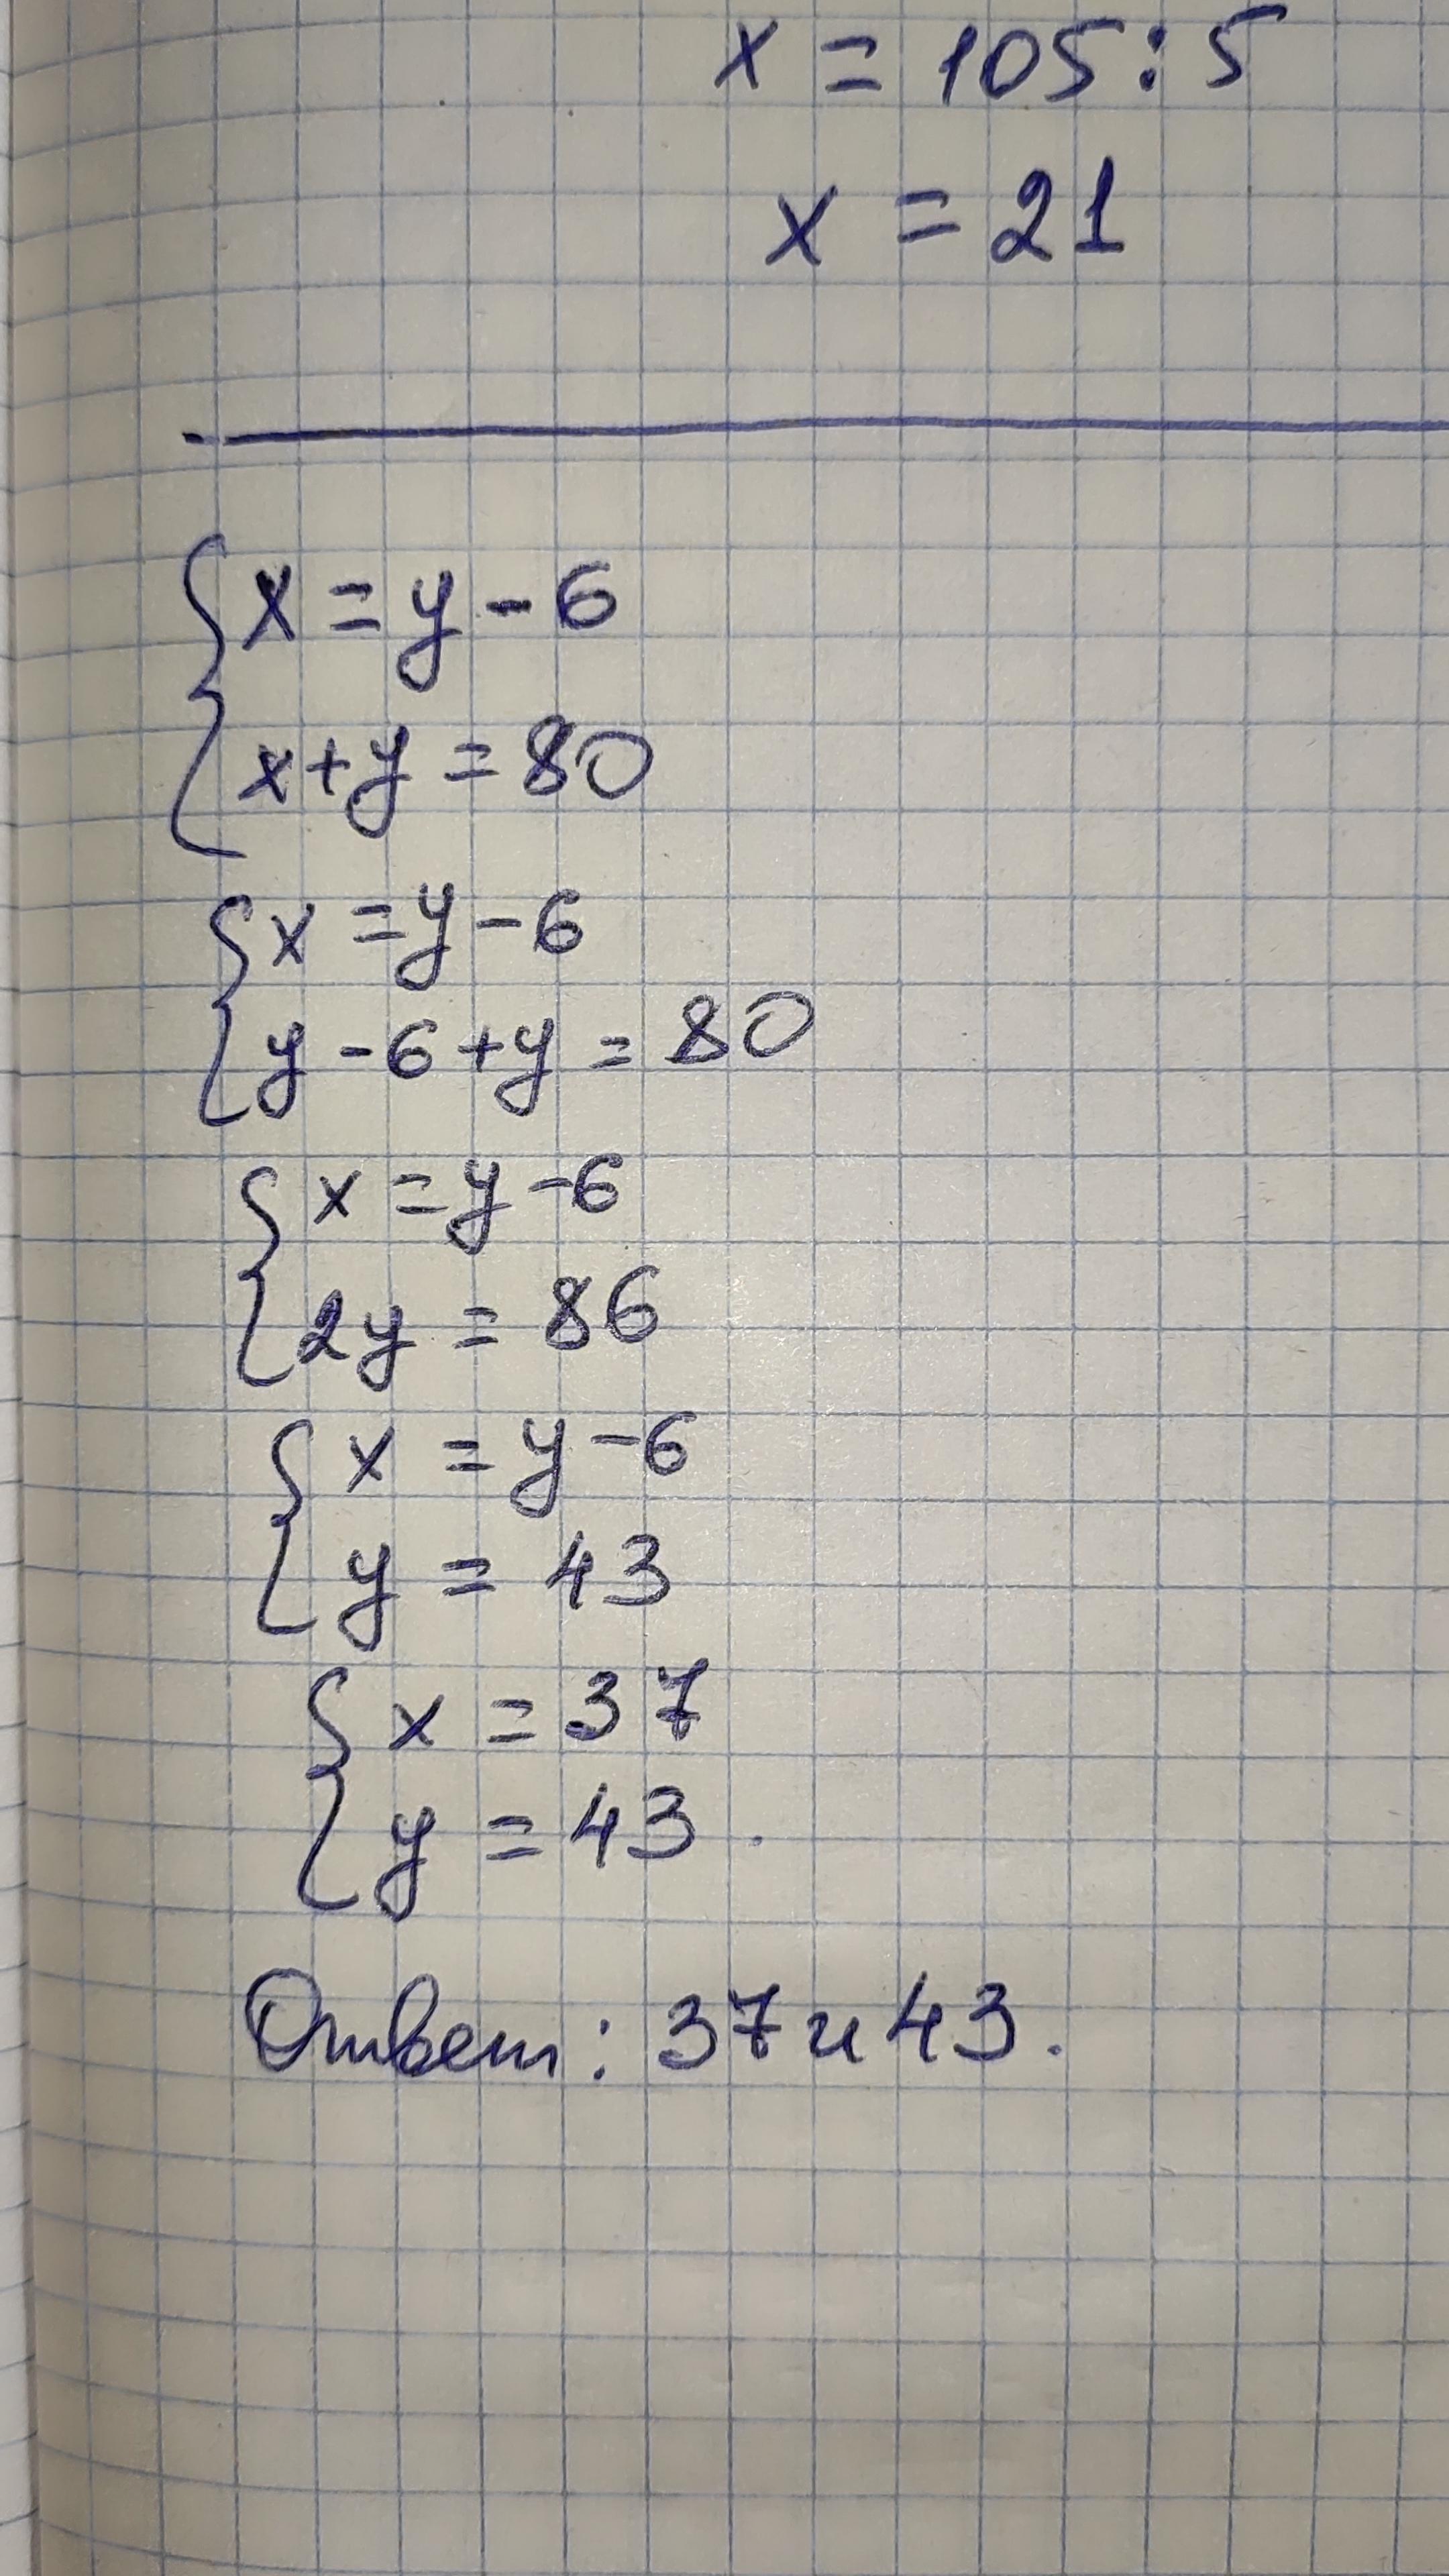 x = 105 : 5
x = 21
x = y - 6
x + y = 80
x = y - 6
y - 6 + y = 80
x = y - 6
2y = 86
x = y - 6
y = 43
x = 37
y = 43.
Ответ: 37 и 43.